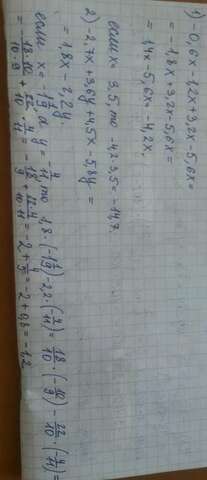 1) 0,6x-1,2x+3,2x-5,6x=
= -1,8x+3,2x-5,6x=
= 1,4x-5,6x= -4,2x.
если x= 3,5, то -4,2·3,5= -14,7.
2) -2,7x+3,6y+4,5x-5,8y=
= 1,8x-2,2y.
если x= -1 1/9, а y= 4/11, то 1,8·(-1 1/9)-2,2·(-4/11)= 18/10·(-10/9)-22/10·(-4/11)=
= -18·10/10·9+22/10·4/11= -18/9+22·4/10·11= -2+4/5= -2+0,8= -1,2